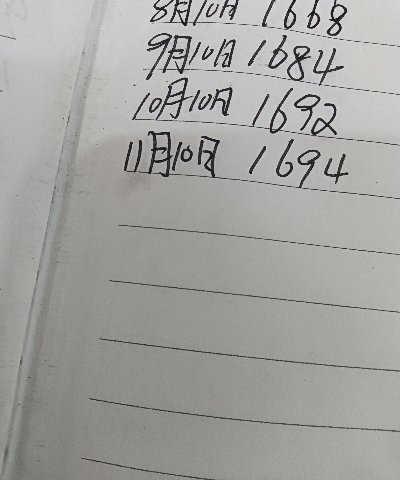 8月10日 1668
9月10日 1684
10月10日 1692
11月10日 1694